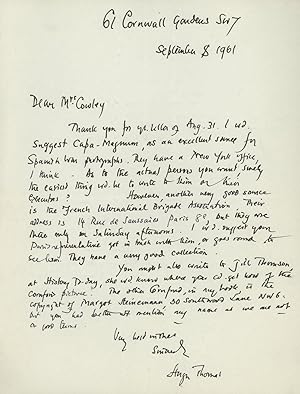 61 Cornwall Gardens SW7
September 8 1961
Dear Mrs Cowley
Thank you for yr letter of Aug. 31. I wd
suggest Capa-Magnum, as an excellent source for
Spanish War photographs. They have a New York office,
I think. As to the actual persons you want surely
the easiest thing wd be to write to them or their
Executors? However another very good source
is the French International Brigade Association. Their
address is 14 Rue de Saussaies Paris 8e, but they are
there only on Saturday afternoons. I wd suggest your
Paris representative got in touch with them, or goes round to
see him. They have a very good collection.
You might also write to Jill Thomson
at History Today, she wd know where you cd get hold of the
Cornford picture. The other Cornford, in my book, is the
copyright of Margot Heinemann 30 Southwood Lane NW6.
but you had better not mention my name as we are not
on good terms.
Very best wishes
Sincerely
Hugh Thomas